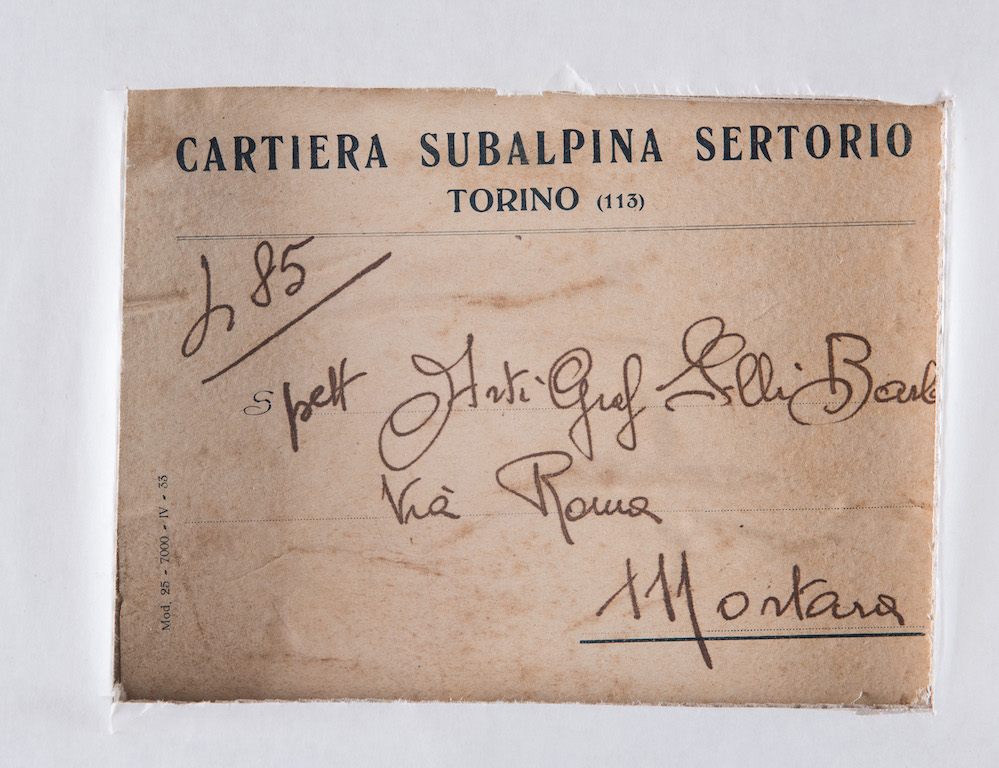 CARTIERA SUBALPINA SERTORIO
TORINO (113)
85
Spett Arti Graf Flli Barb
Via Roma
Mortara
Mod. 25 - 7000 - IV - 33